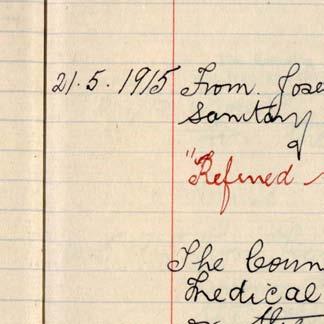 21.5.1915 From Jose
Sanitary
"Refined
The Coun
Medical